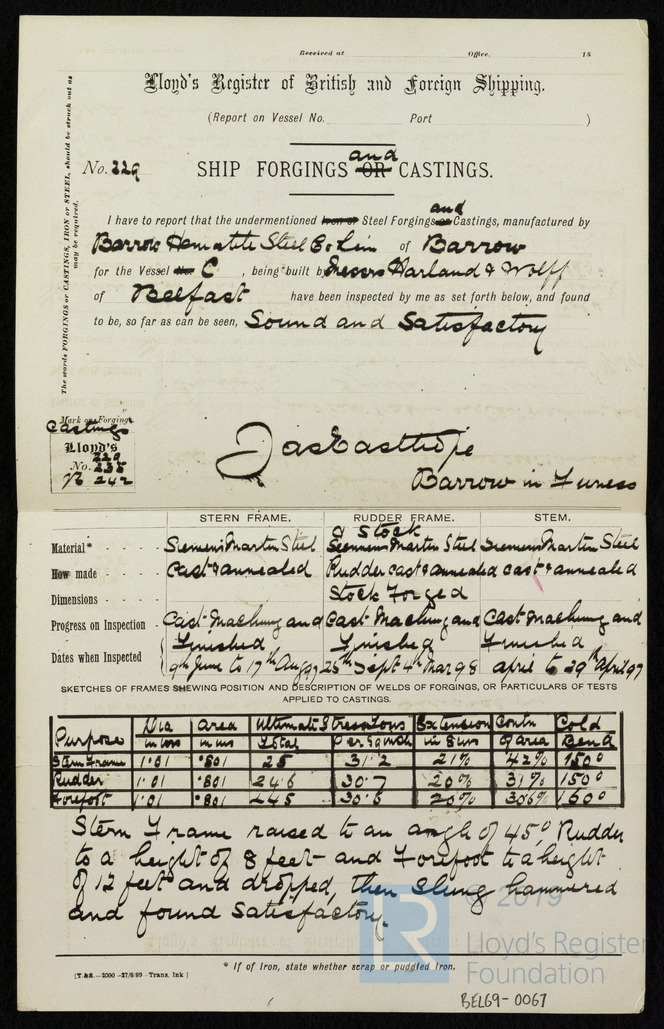 Received at Office, 18
Lloyd's Register of British and Foreign Shipping.
(Report on Vessel No. Port )
The words FORGINGS or CASTINGS, IRON or STEEL, should be struck out as may be required.
No. 229
and
SHIP FORGINGS OR CASTINGS.
and
I have to report that the undermentioned Iron or Steel Forgings or Castings, manufactured by
Barrow Hematite Steel Co Lim of Barrow
for the Vessel No. C , being built by Messrs Harland & Wolff
of Belfast have been inspected by me as set forth below, and found
to be, so far as can be seen, Sound and Satisfactory
Mark on Forging.
Castings
Lloyd's
229
No. 235
242
Jas Easthope
Barrow in Furness
STERN FRAME. RUDDER FRAME. STEM.
& Stock
Material* Siemens Martin Steel Siemens Martin Steel Siemens Martin Steel
How made Cast & annealed Rudder cast & annealed cast & annealed
Dimensions Stock Forged
Progress on Inspection Cast Machining and Cast Machining and Cast Machining and
Finished Finished Finished
Dates when Inspected 9th June to 17th Aug 97 25th Sept 4th Mar 98 april to 29th April 97
SKETCHES OF FRAMES SHEWING POSITION AND DESCRIPTION OF WELDS OF FORGINGS, OR PARTICULARS OF TESTS
APPLIED TO CASTINGS.
Purpose Dia in ins area in ins Ultimate Stress Tons Total Per Sq inch Extension in 8 ins Contn of area Cold Bend
Stern Frame 1.01 .801 25 31.2 21% 42% 150°
Rudder 1.01 .801 24.6 30.7 20% 31% 150°
Forefoot 1.01 .801 24.5 30.6 20% 30.6% 160°
Stern Frame raised to an angle of 45°, Rudder
to a height of 8 feet and Forefoot to a height
of 12 feet and dropped, then slung hammered
and found Satisfactory.
* If of Iron, state whether scrap or puddled Iron.
[T.&S.—2000 -27/8/89 -Trans. Ink]
© 2019
LR
Lloyd's Register
Foundation
BEL69-0067